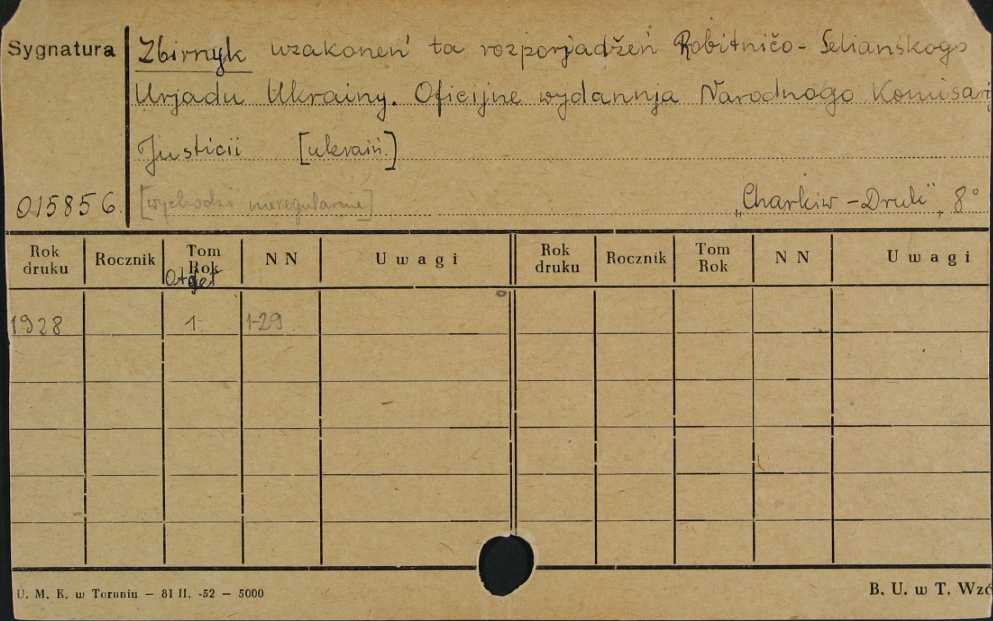 Sygnatura
Zbirnyk uzakoneń ta rozporjadżeń Robitničo-Selianśkogo
Urjadu Ukrainy. Oficijne wydannja Narodnogo Komisarj
Justicii [ukraiń.]
015856. [wychodzi nieregularnie] „Charkiw-Druk", 8°
Rok druku Rocznik Tom Rok Otdeł N N Uwagi Rok druku Rocznik Tom Rok N N Uwagi
1928 1 1-29
U. M. K. w Toruniu – 81 II. -52 – 5000 B. U. w T. Wzó